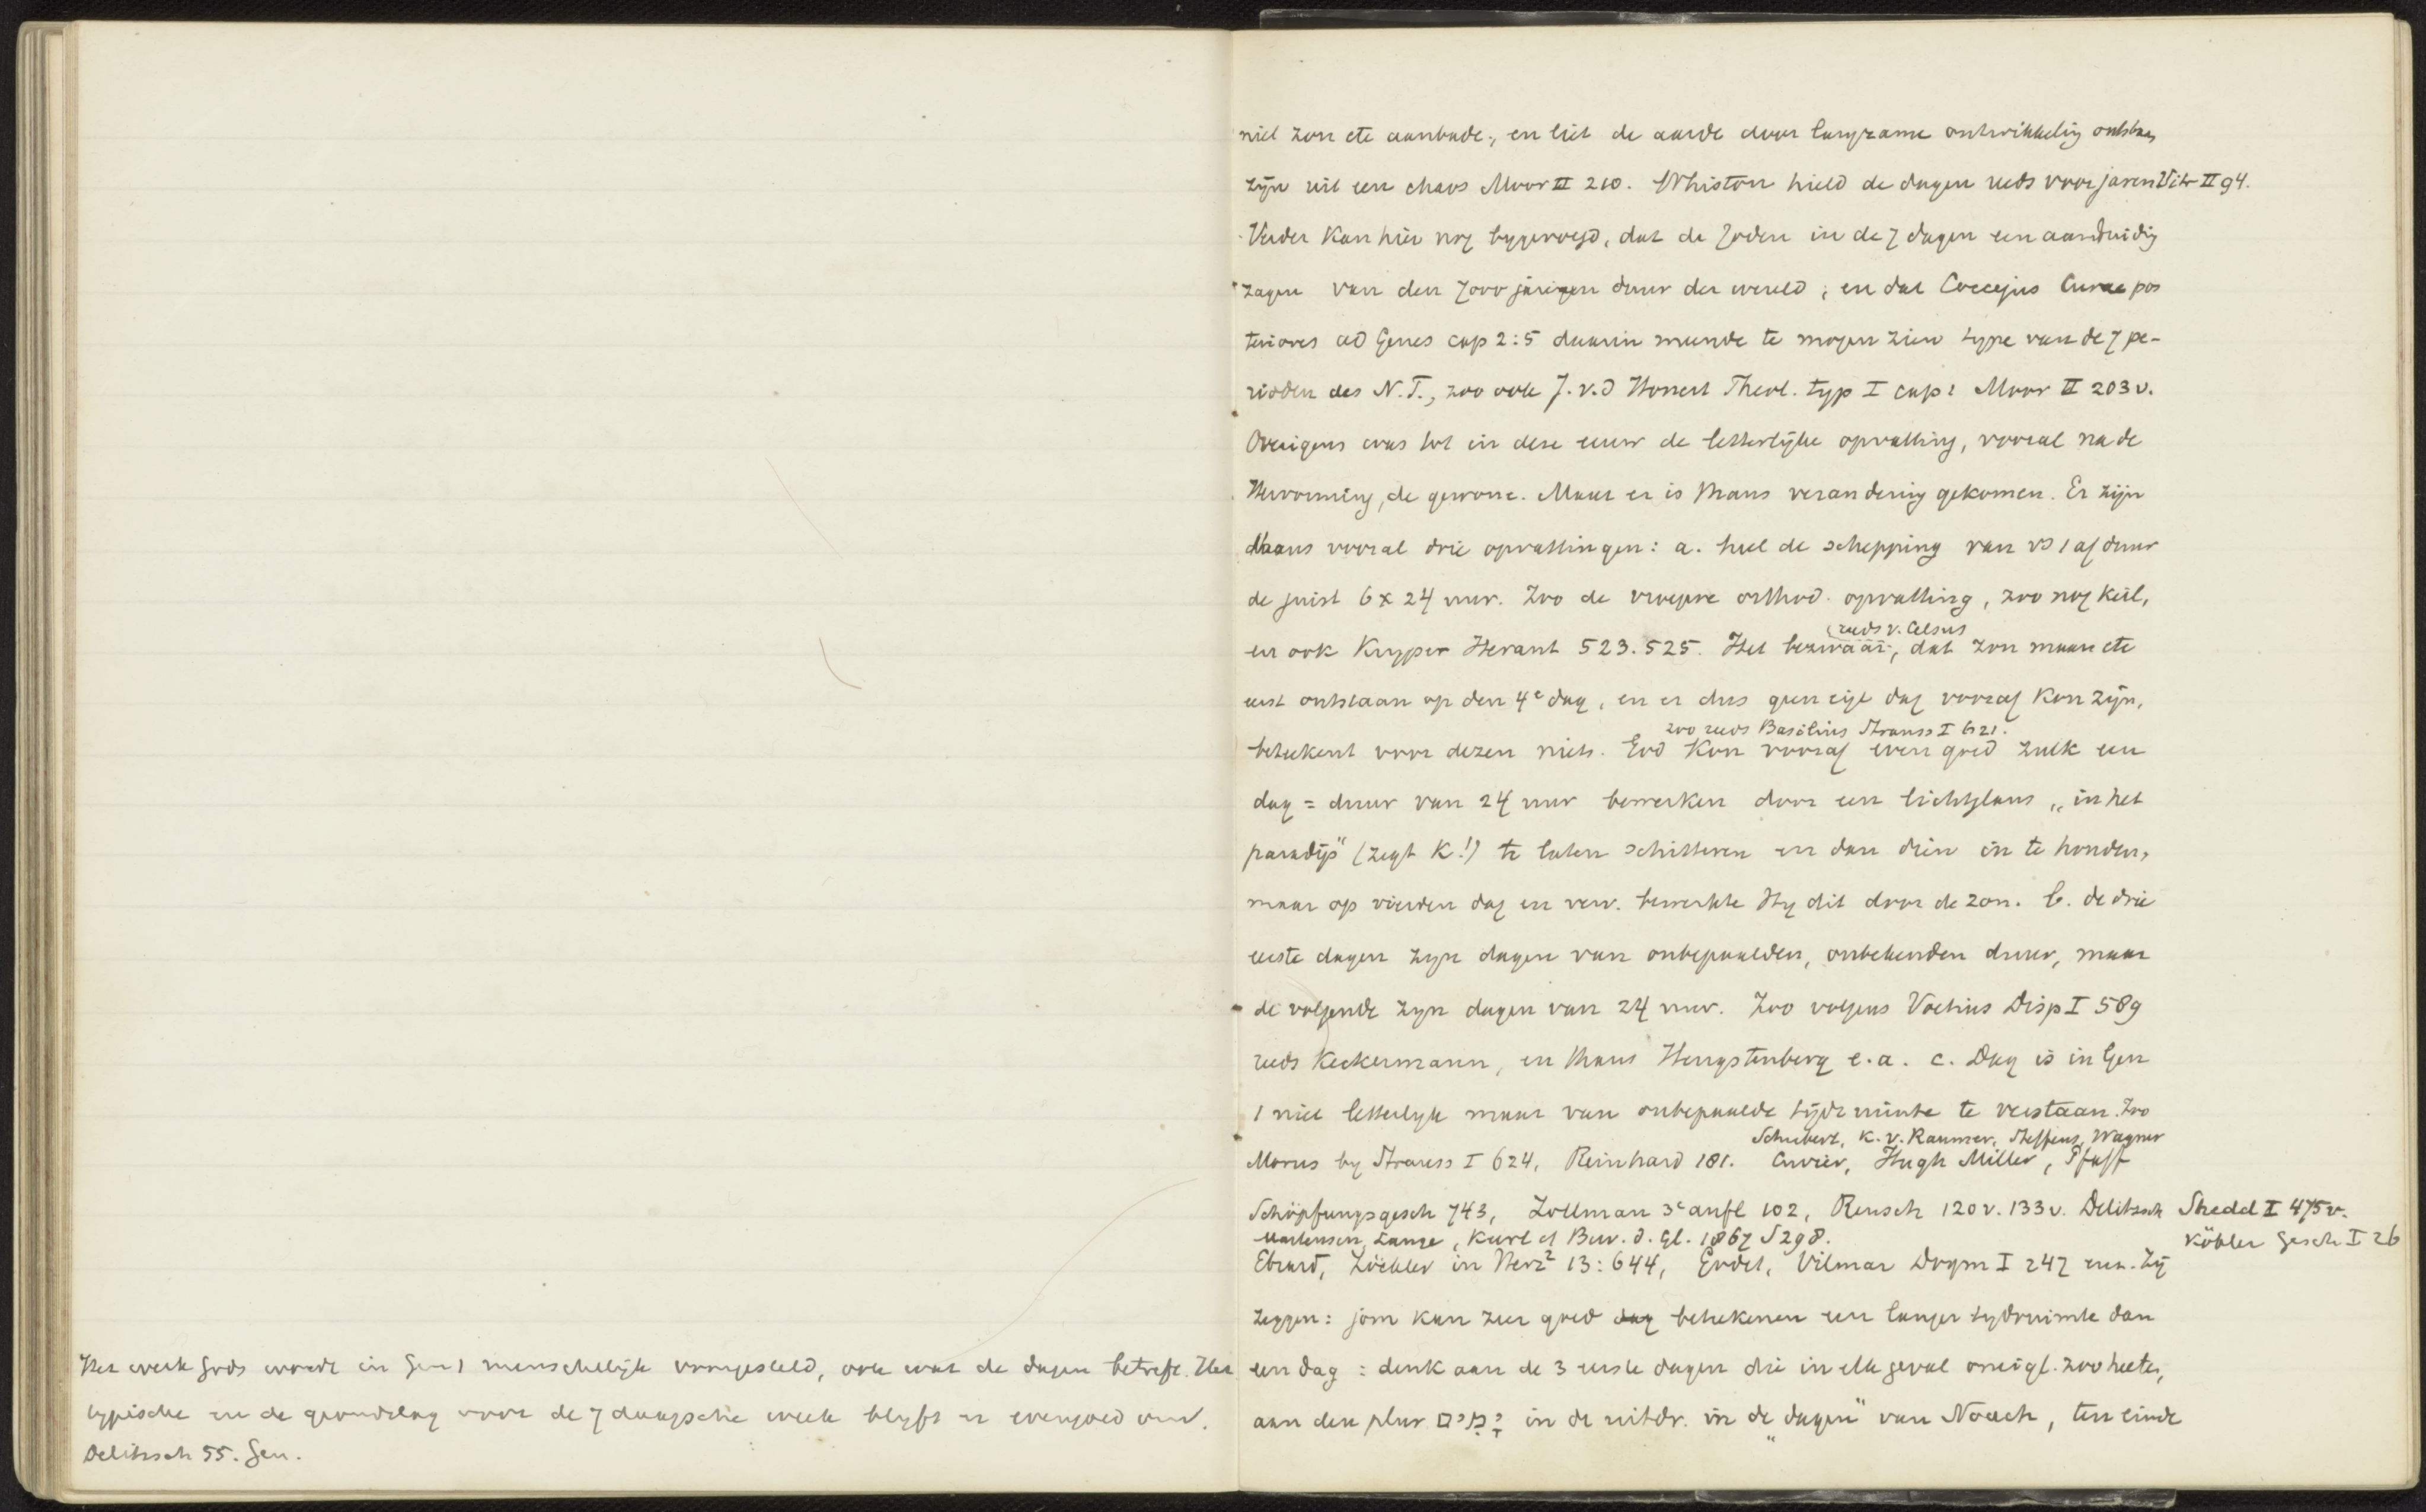 niet zon etc aanbade, en liet de aarde door langzame ontwikkeling ontstaan
zijn uit een chaos Moor II 210. Whiston hield de dagen reeds voor jaren Vitr II 94.
Verder kan hier nog bygevoegd, dat de Joden in de 7 dagen een aanduidig
zagen van den 7000 jarigen duur der wereld, en dat Coccejus Curae pos
teriores ad Genes cap 2:5 daarin meende te mogen zien type van de 7 pe-
rioden des N.T., zoo ook J. v. d Honert Theol. typ I cap 2 Moor II 203 v.
Overigens was tot in deze eeuw de letterlijke opvatting, vooral na de
Hervorming, de gewone. Maar er is thans verandering gekomen. Er zijn
thans vooral drie opvattingen: a. heel de schepping van vs 1 af duur
de juist 6 x 24 uur. Zoo de vroegere orthod. opvatting, zoo nog Keil,
reeds v. Celsus
en ook Kuyper Heraut 523. 525. Het bezwaar, dat zon maan etc
eerst ontstaan op den 4e dag, en er dus geen eigl dag vooraf kon zijn,
zoo reeds Basilius Strauss I 621.
beteekent voor dezen niets. God kon vooraf even goed zulk een
dag = duur van 24 uur bewerken door een lichtglans „in het
paradijs" (zegt K!) te laten schitteren en dan dien in te houden,
maar op vierden dag en verv. bewerkte Hy dit door de zon. b. de drie
eerste dagen zyn dagen van onbepaalden, onbekenden duur, maar
de volgende zyn dagen van 24 uur. Zoo volgens Voetius Disp I 589
reeds Keckermann, en thans Hengstenberg e.a. c. Dag is in Gen
1 niet letterlyk maar van onbepaalde tijdruimte te verstaan. Zoo
Schubert, K. v. Raumer, Steffens, Wagner
Morus by Strauss I 624, Reinhard 181. Cuvier, Hugh Miller, Pfaff
Schöpfungsgesch 743, Zollman 3e aufl 102, Reusch 120 v. 133 v. Delitzsch Shedd I 475 v.
Martensen, Lange, Kurtz Bew. d. Gl. 1867 S 298. Köhler Gesch I 26
Ebrard, Zöckler in Herz2 13:644, Godet, Vilmar Dogm I 247 enz. Zij
zeggen: jom kan zeer goed dag beteekenen een langer tydruimte dan
een dag: denk aan de 3 eerste dagen die in elk geval oneigl. zoo heeten,
aan den plur יָמִים in de uitdr. „in de dagen" van Noach, ten einde
Het werk Gods wordt in Gen 1 menschelijk voorgesteld, ook wat de dagen betreft. Het
typische en de grondslag voor de 7 daagsche week blyft er evengoed om.
Delitzsch 55. Gen.